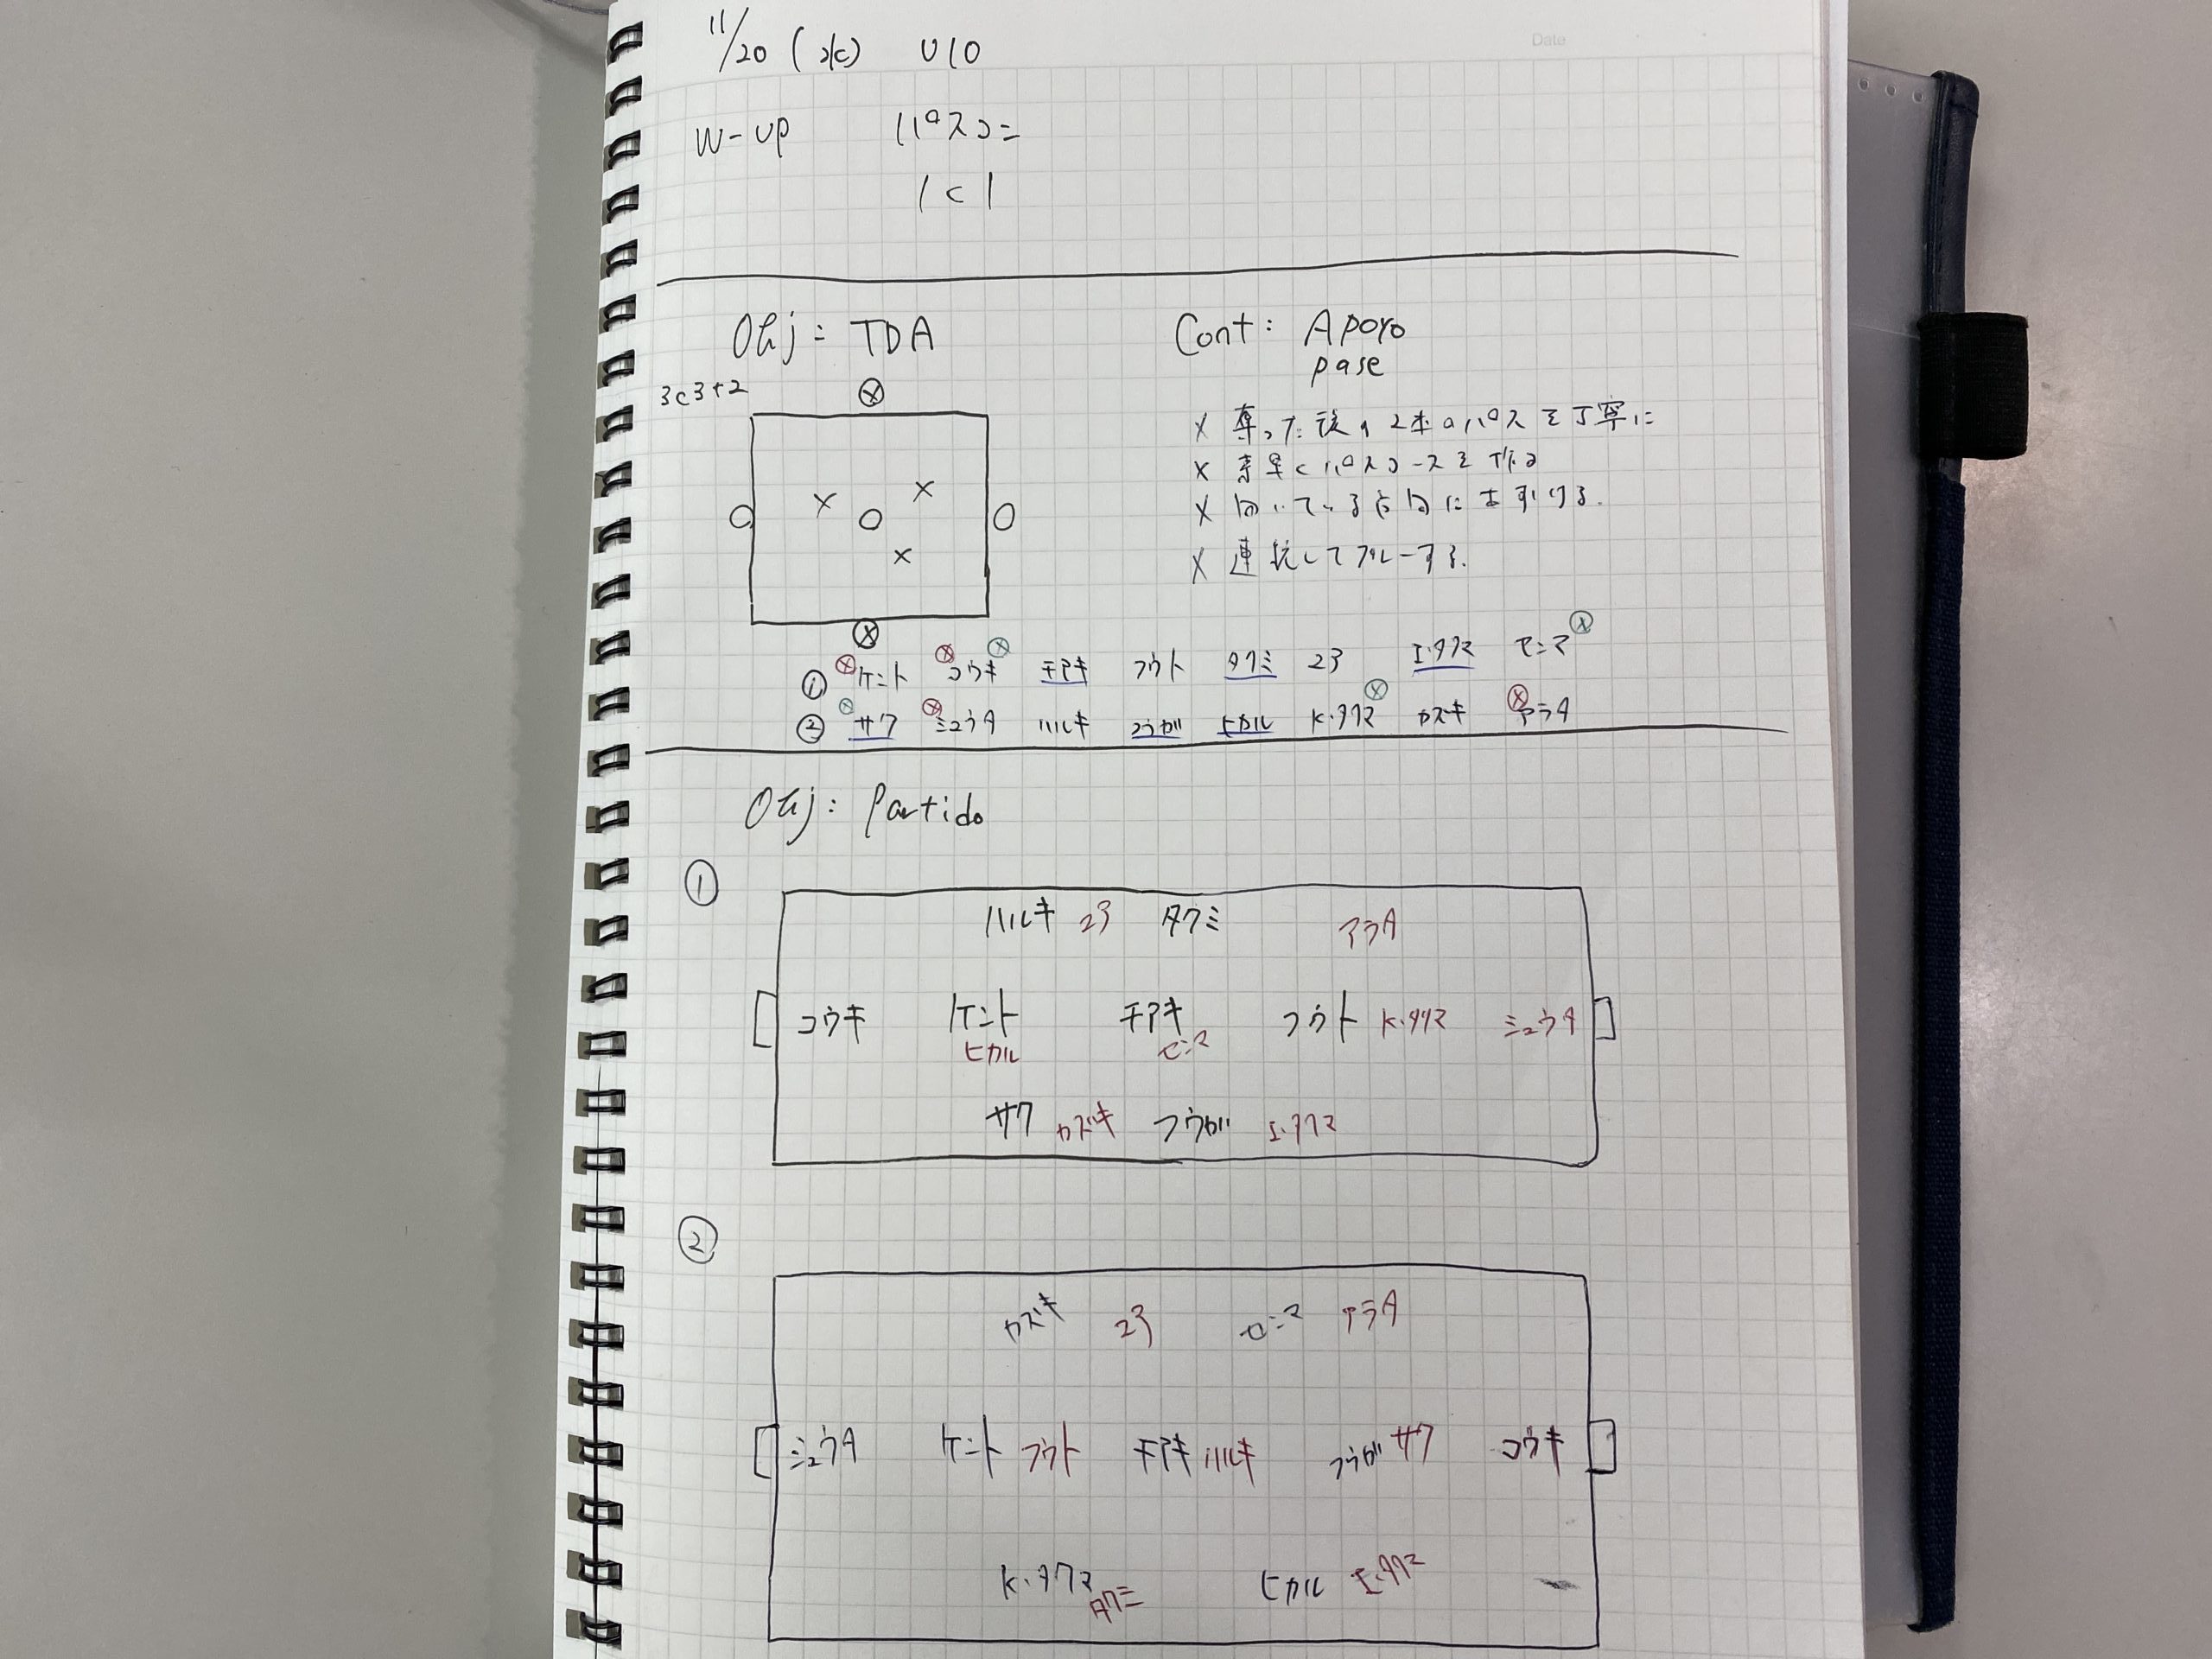 11/20 (水) U10
Date
W-up パスコン
1c1
Obj: TDA
Cont: Apoyo
pase
3c3+2
× 奪った後の2本のパスを丁寧に
× 素早くパスコースを作る
× 向いている方向にまず付ける.
× 連続してプレーする.
① ケント コウキ チアキ フウト タクミ 23 I.タクマ センマ
② サク ミュウタ ハルキ フウガ ヒカル K.タクマ カズキ アラタ
Obj: Partido
①
ハルキ 23 タクミ アラタ
コウキ ケント チアキ フウト K.タクマ ミュウタ
ヒカル センマ
サク カズキ フウガ I.タクマ
②
カズキ 23 センマ アラタ
ミュウタ ケント フウト チアキ ハルキ フウガ サク コウキ
K.タクマ ヒカル I.タクマ
タクミ